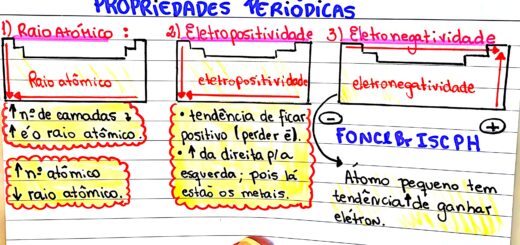 PROPRIEDADES PERIÓDICAS
1) Raio Atômico :
Raio atômico
↑ nº de camadas ↓
↑ é o raio atômico.
↑ nº atômico
↓ raio atômico.
2) Eletropositividade
eletropositividade
• tendência de ficar
positivo (perder é).
• ↑ da direita p/a
esquerda; pois lá
estão os metais.
3) Eletronegatividade
eletronegatividade
⊖
⊕
FONClBrISCPH
Átomo pequeno tem
tendência ↑ de ganhar
eletron.